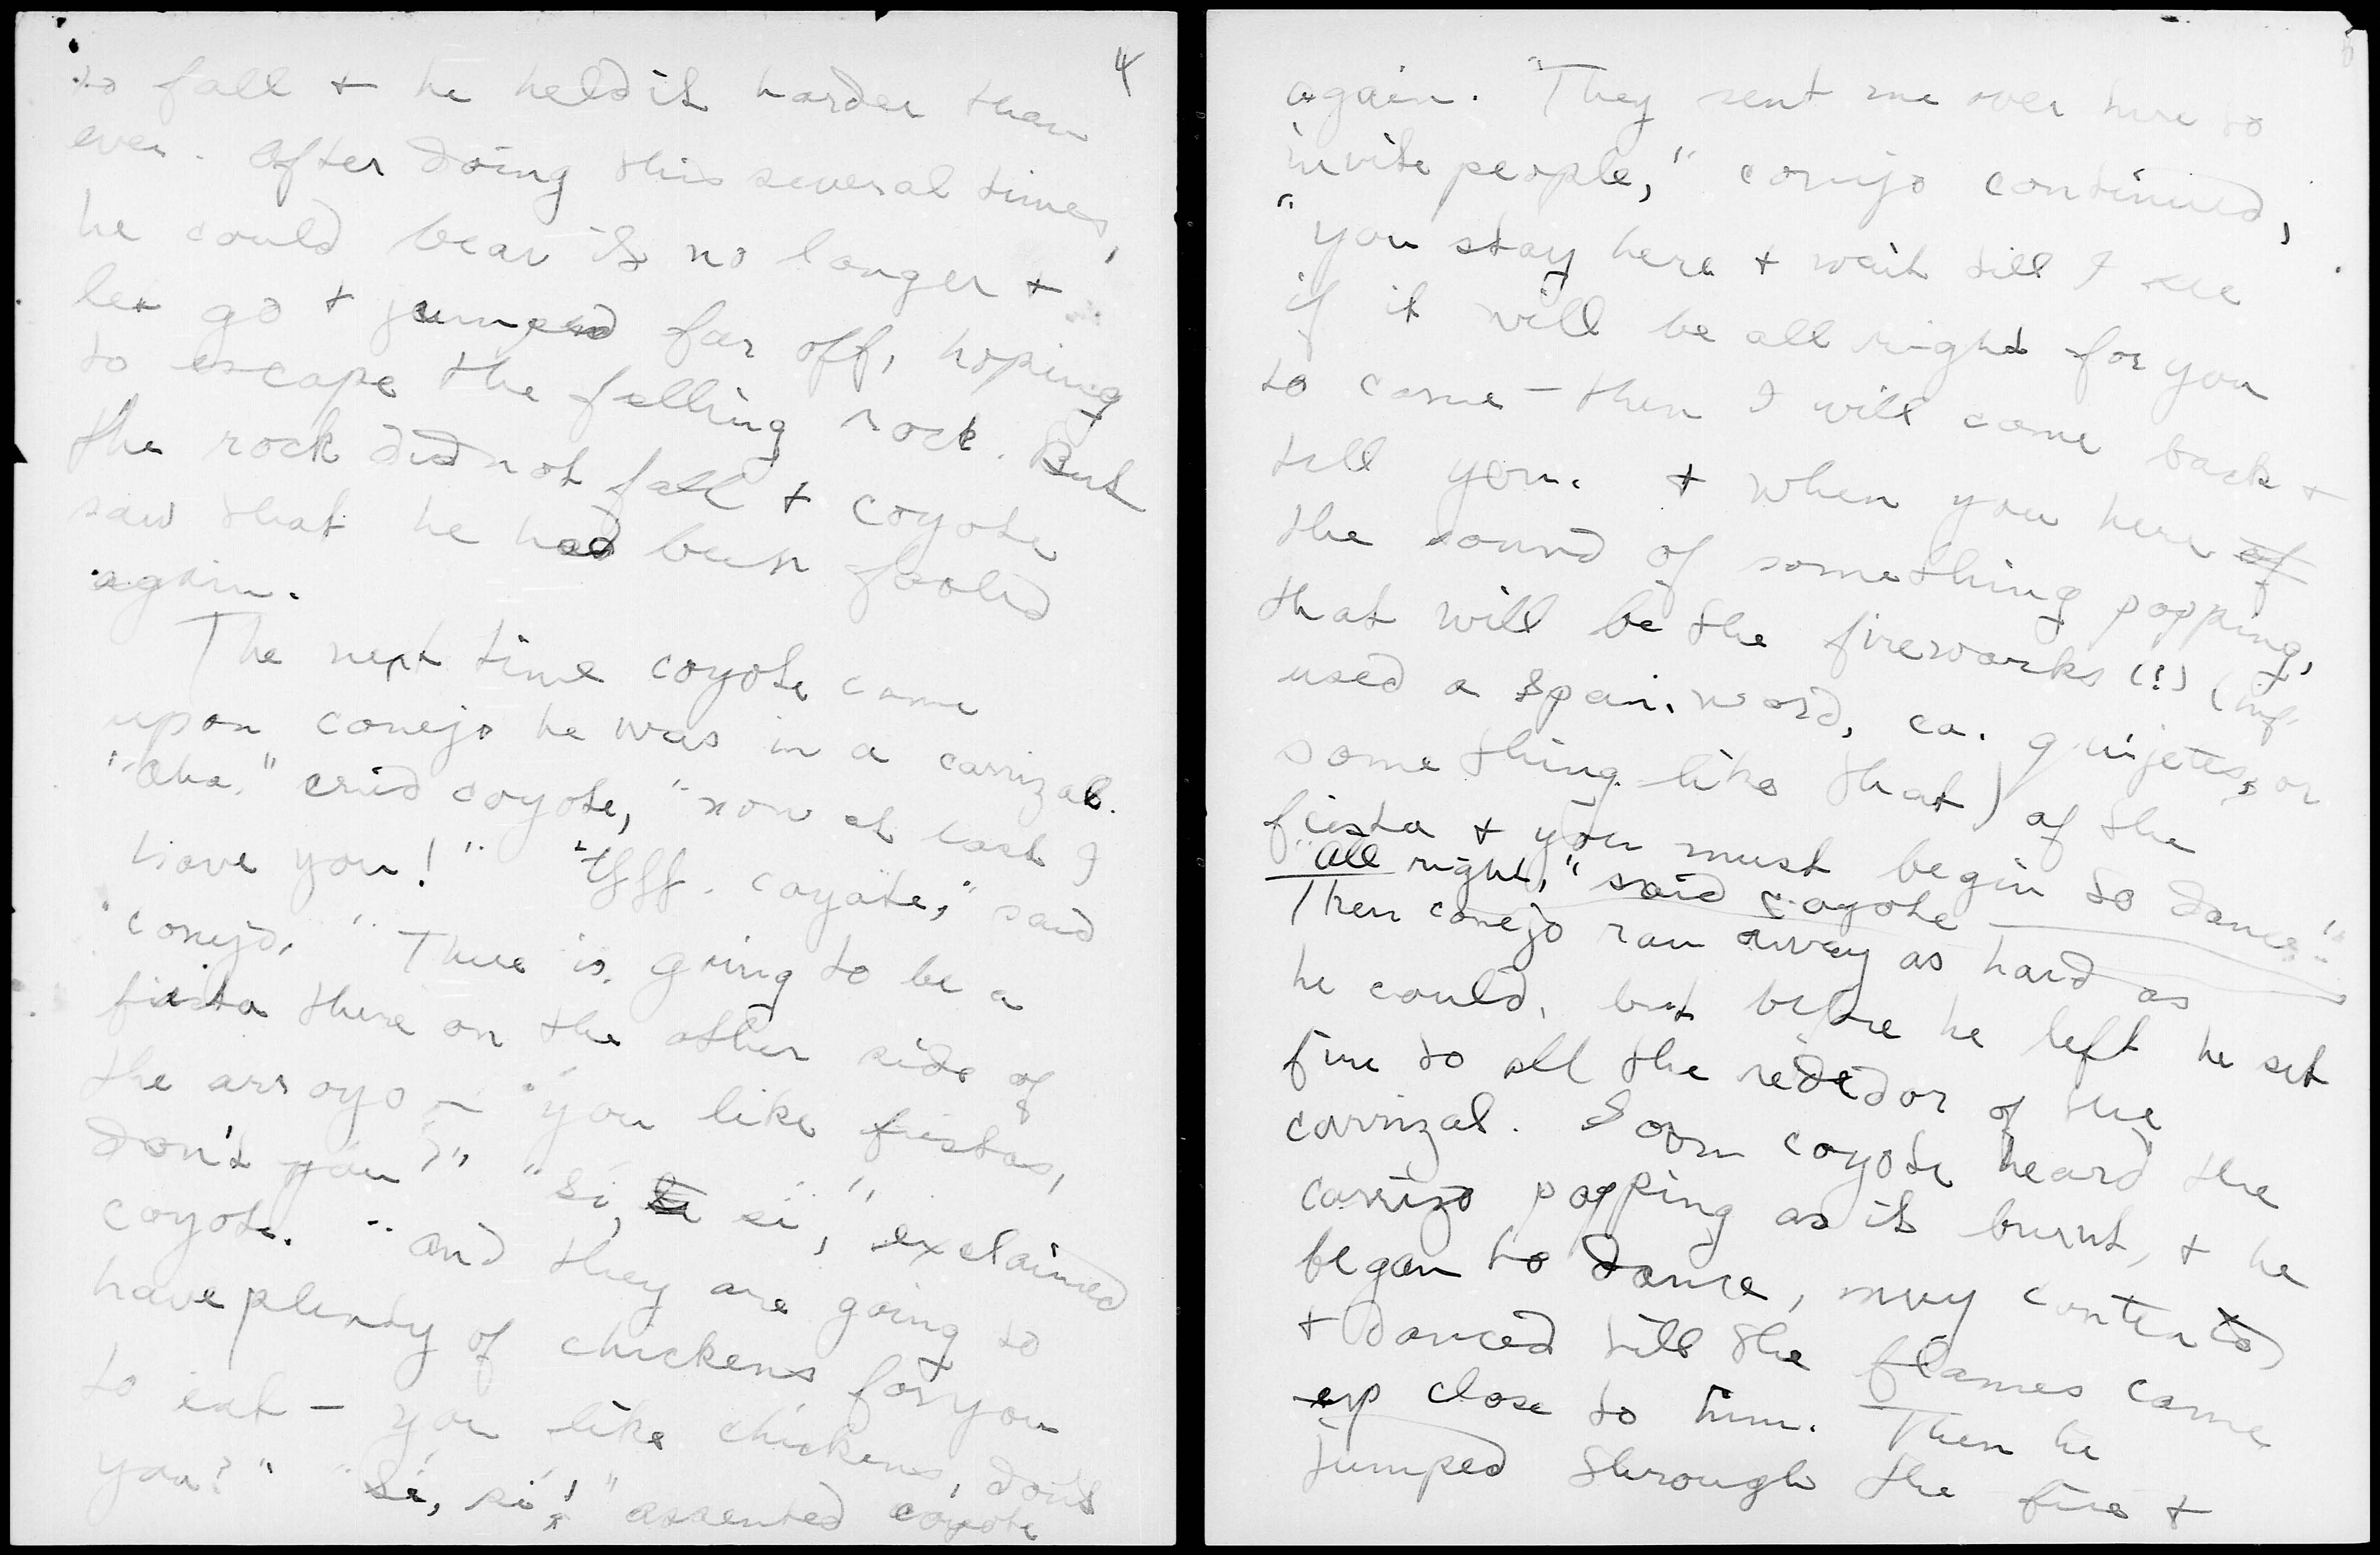 4
to fall + he held it harder than
ever. After doing this several times,
he could bear it no longer +
let go + jumped far off, hoping
to escape the falling rock. But
the rock did not fall + coyote
saw that he had been fooled
again.
The next time coyote came
upon conejo he was in a carrizal.
"Aha," cried coyote, "now at last I
have you!" "Ufff. coyote," said
conejo. "There is going to be a
fiesta there on the other side of
the arroyo — "you like fiestas,
don't you?" "Si, si," exclaimed
coyote. "And they are going to
have plenty of chickens for you
to eat — you like chickens, don't
you?" "Si, si!" assented coyote
again. "They sent me over here to
invite people," conejo continued,
"you stay here + wait till I see
if it will be all right for you
to come — then I will come back +
tell you. + when you here of
the sound of something popping,
that will be the fireworks (!) (inf.
used a Span. word, ca. quijetes, or
something like that) of the
fiesta + you must begin to dance."
"All right," said coyote
Then conejo ran away as hard as
he could, but before he left he set
fire to all the rededor of the
carrizal. Soon coyote heard the
carrizo popping as it burnt, + he
began to dance, muy contento
+ danced till the flames came
up close to him. Then he
jumped through the fire +